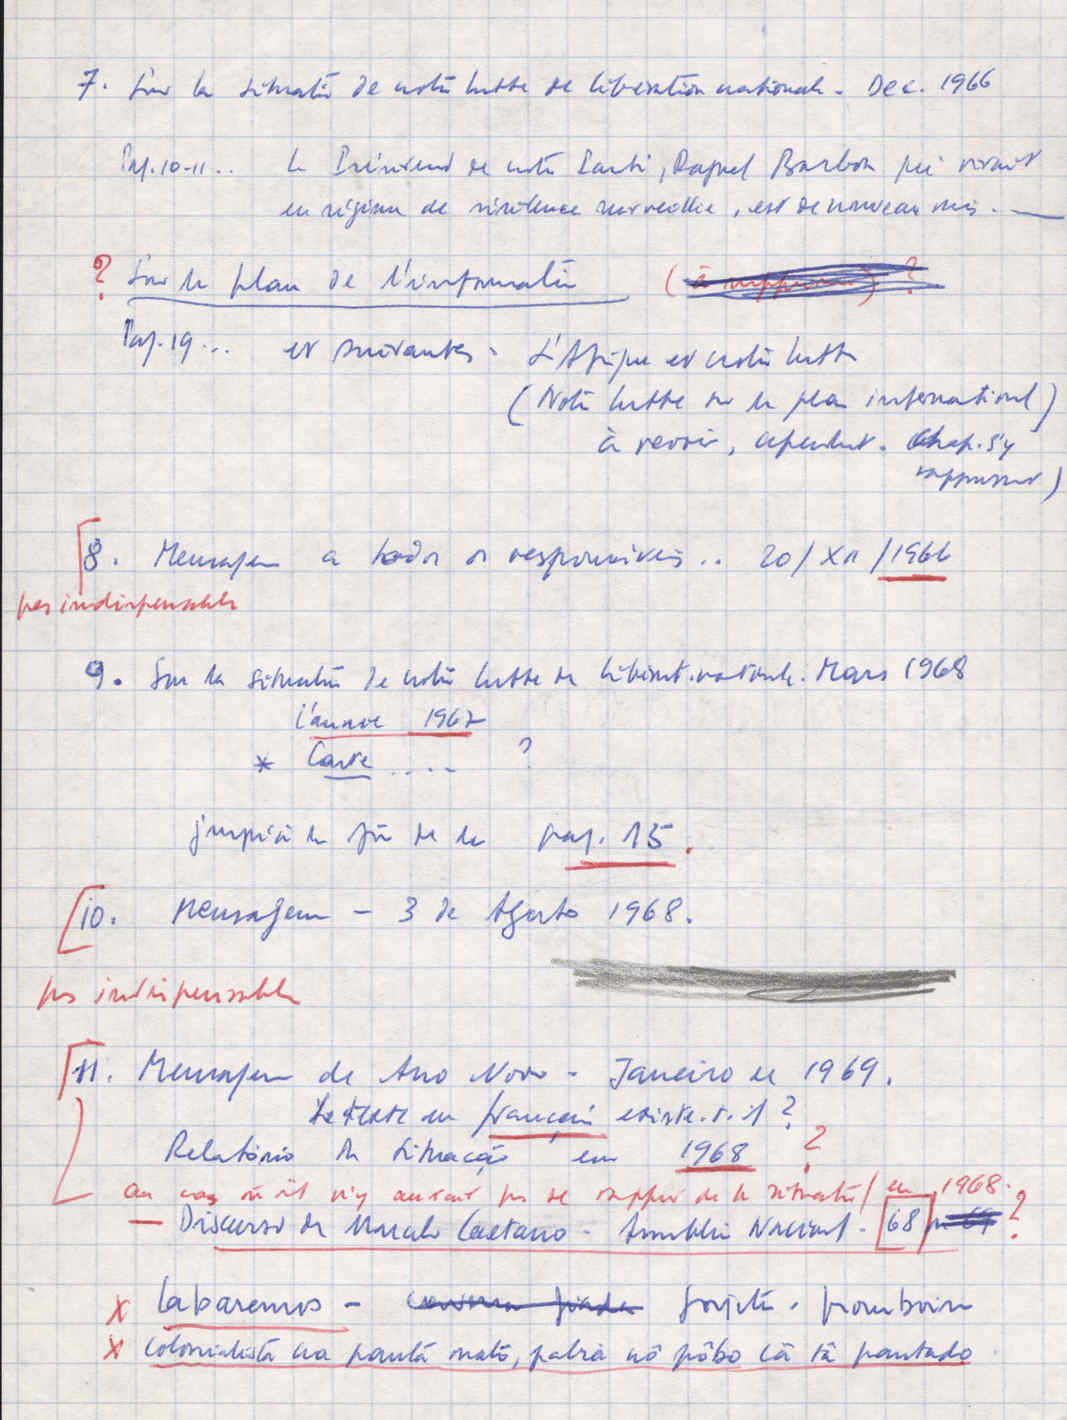 7. Sur la situatiõ de notre lutte de libération nationale. Dec. 1966
Pag. 10-11.. Le Président de notre Parti, Rafael Barbosa qui vivait
en régime de résidence surveillée, est de nouveau mis. —
? Sur le plan de l'informatiõ ?
Pag. 19... et suivantes. L'Afrique et notre lutte
(Notre lutte sur le plan international)
à revoir, cependant. Chap. s'y
8. Mensagem a todos os responsáveis.. 20/XII/1966
pas indispensable
9. Sur la situatiõ de notre lutte de libérat. nationale. Mars 1968
L'année 1967
* Carte .... ?
jusqu'à la fin de la pag. 15.
10. Mensagem - 3 de Agosto 1968.
pas indispensable
11. Mensagem de Ano Novo - Janeiro de 1969.
Le texte en français existe-t-il ?
Relatório da situação em 1968 ?
au cas où il n'y aurait pas de rapport de la situatiõ / en 1968.
— Discurso de Marcelo Caetano - Assembleia Nacional. 68 ?
x Labaremos -
x colonialista na pantá mató, palrá nô pôbo cá tá pantado.